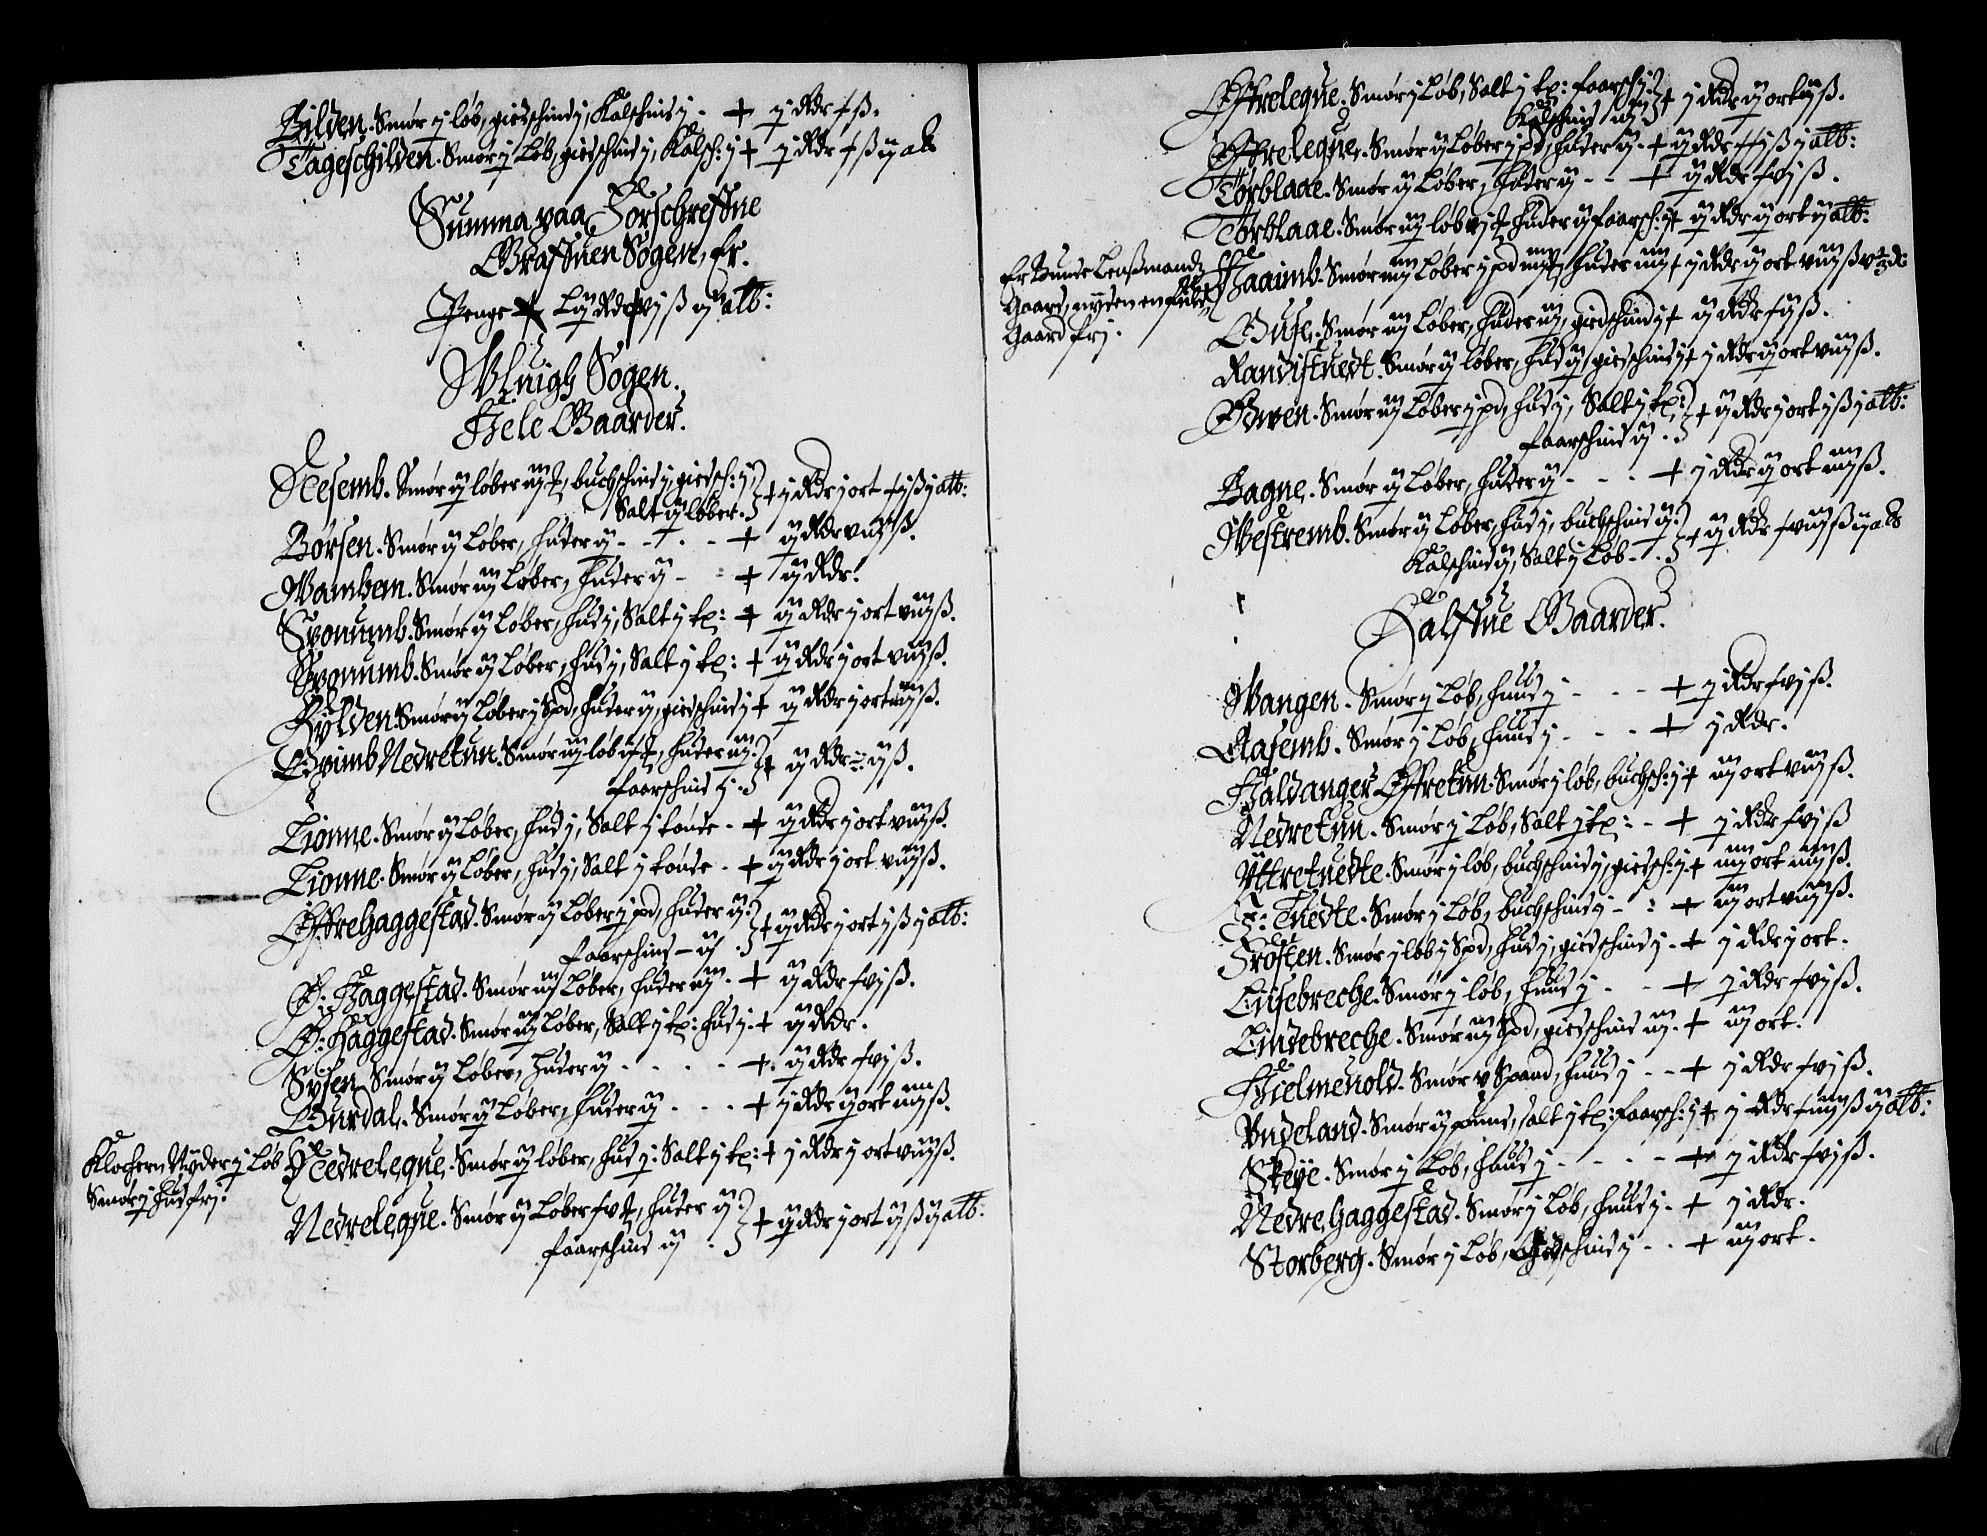 Bilden. Smør j løb, giedschind j, Kalschind j. + j Rdr f ß.
Tageschilden. Smør j Løb, giedschind j, Kalsch: j + j Rdr f ß ij alb
Summa paa Forschrefne
Grafuen Sogen, Er.
Penge Lij Rdr vj ß ij alb:
Vluigh Sogen.
Hele Gaarder.
Nesemb. Smør ij løber iij, buchschind j, giedsch: j
Salt ij løber. + j Rdr j ort f ij ß j alb:
Børsen. Smør ij Løber, huder ij - - + ij Rdr viij ß.
Wambem. Smør iij Løber, huder ij - + ij Rdr.
Svonumb. Smør ij Løber, hud j, Salt j tp: + ij Rdr j ort viij ß.
Svonumb. Smør ij Løber, hud j, Salt j tp: + ij Rdr j ort viij ß.
Hylden. Smør ij Løber j Spd, huder ij, giedschind j + ij Rdr j ort viij ß.
Gvimb Nedretun. Smør iij løb, huder iij
faarschind j. + ij Rdr - ij ß.
Lionne. Smør ij Løber, hud j, Salt j tønde - + ij Rdr j ort viij ß.
Lionne. Smør ij Løber, hud j, Salt j tønde - + ij Rdr j ort viij ß.
Øfre Haggestad. Smør ij Løber j pd, huder ij
faarschind - ij + ij Rdr j ort ij ß j alb:
Ø: Haggestad. Smør iij Løber, huder iij - + ij Rdr f vj ß.
Ø: Haggestad. Smør iij Løber, Salt j tp: hud j. + ij Rdr.
Sysen Smør ij Løber, huder ij - - - - + ij Rdr f vj ß.
Gurdal. Smør ij Løber, huder ij - - - + j Rdr ij ort iiij ß.
Klochern Nyder j Løb
Smør j hud frj.
Nedrelegne. Smør ij løber, hud j: Salt j tp: + j Rdr j ort viij ß.
Nedrelegne. Smør ij Løber, huder ij
faarschind ij + ij Rdr j ort ij ß ij alb:
Øfrelegne. Smør j Løb, Salt j tp: faarsch: j
Kalschind iij + j Rdr ij ort ij ß.
Øfrelegne. Smør ij Løber j pd, huder ij - + ij Rdr f ij ß j alb:
Tørblaae. Smør ij Løber, huder ij - - + ij Rdr f vj ß.
Tørblaae. Smør iij løb, huder ij faarsch: j + ij Rdr ij ort ij alb:
Er Bunde Lensmandz
Gaard, nyder en fuld
Gaard frj.
Haaimb. Smør iiij Løber j pd, huder iiij + j Rdr ij ort viij ß
Guse. Smør iij Løber, huder iij, giedschind j + ij Rdr f ij ß.
Randistuedt. Smør ij løber, hud ij, giedschind j + j Rdr ij ort viij ß.
Gwen. Smør iij Løber j pd, hud j, Salt j tp:
faarschind ij. + ij Rdr j ort ij ß j alb:
Bagne. Smør ij Løber, huder ij - - - + j Rdr ij ort iiij ß.
Westremb. Smør ij Løber, hud j, buchschind ij
Kalschind ij, Salt j Løb - - + ij Rdr f viij ß ij alb
Halfue Gaarder.
Wangen. Smør j Løb, huud j - - - + j Rdr f vj ß.
Aasemb. Smør j Løb, huud j - - - + j Rdr.
Haldanger Øfretun. Smør j løb, buchsch: j + iij ort viij ß.
Nedretun. Smør j Løb, Salt j tp: - + j Rdr f vj ß
Yttretuedte. Smør j løb, buchschind j, giedsch: j + iij ort iiij ß.
Tuedte. Smør j Løb, buchschind j - - + iij ort viij ß.
Frøsten. Smør j løb j Spd, hud j, giedschind j. + j Rdr j ort.
Lusebreche. Smør j løb, huud j - - + j Rdr f vj ß.
Lindebreche. Smør iij Spd, giedschind iij. + iij ort.
Hielmeuold. Smør v Spand, huud j - - + j Rdr f vj ß.
Vndeland. Smør ij pund, salt j tp: faarsch: j + j Rdr f iiij ß ij alb:
Skeye. Smør j Løb, huud j - - - + j Rdr f vj ß.
Nedre Haggestad. Smør j Løb, huud j - + j Rdr.
Storberg. Smør j Løb, giedschind j - - + iij ort.